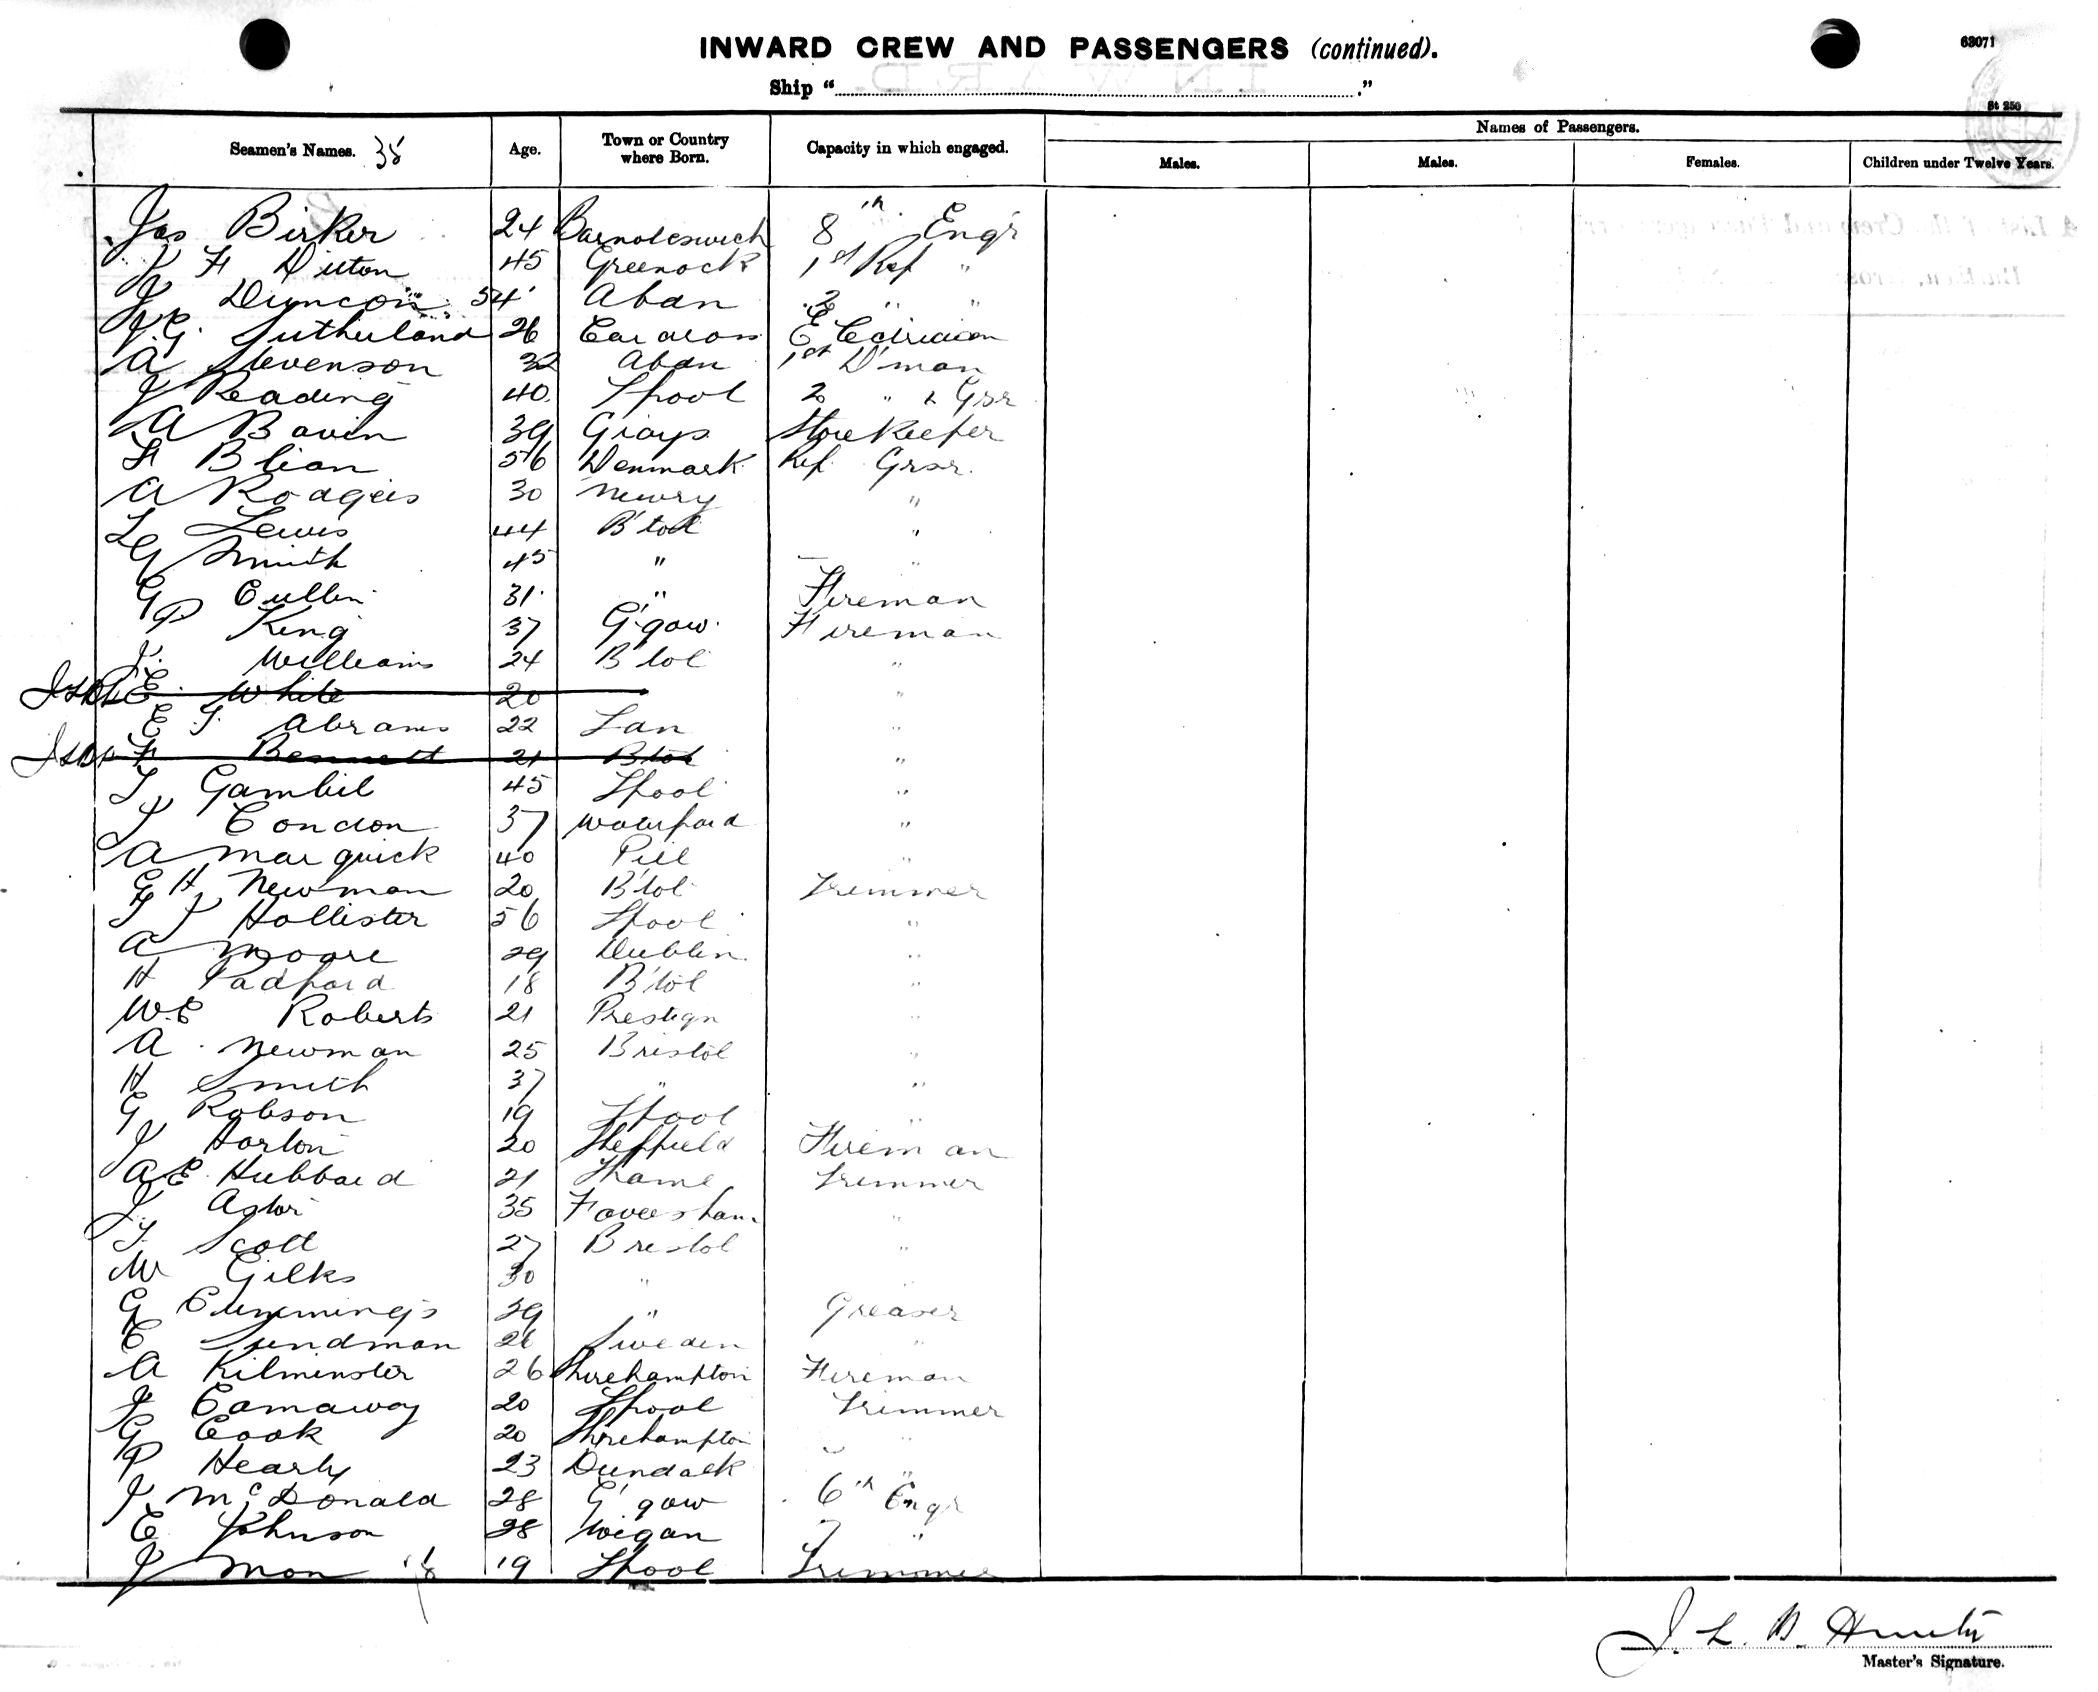 INWARD CREW AND PASSENGERS (continued).
63071
Ship " ."
St 250
Seamen's Names. 38 Age. Town or Country where Born. Capacity in which engaged. Names of Passengers.
Males. Males. Females. Children under Twelve Years.
Jas Birker 24 Barnoleswick 8th Engr
J H Duton 45 Greenock 1st Ref "
J Duncan 54 Abdn 2 " "
J.G. Sutherland 26 Cardross Electrician
A Stevenson 32 Abdn 1st D'man
J Reading 40 Lpool 2 " & Grsr
A Bavin 39 Grays Storekeeper
H Blian 56 Denmark Ref. Grsr.
A Rodgers 30 Newry "
L Lewis 44 B'tol "
G Smith 45 " "
G Cullin 31 " Fireman
P King 37 G'gow Fireman
J. Williams 24 B'tol "
E. White 20 "
E T Abrams 22 Lan "
F Bennett 21 Btol "
T Gambil 45 Lpool "
J Condon 37 Waterford "
A Marquick 40 Pill "
G H Newman 20 B'tol Trimmer
T J Hollister 56 Lpool "
A Moore 29 Dublin "
H Padford 18 B'tol "
W.E Roberts 21 Prestign "
A Newman 25 Bristol "
H Smith 37 " "
G Robson 19 Lpool "
J Horton 20 Sheffield Fireman
A E Hubbard 21 Thame Trimmer
J. Astor 35 Faversham "
T. Scott 27 Bristol "
W Gilks 30 " "
G Cummings 39 " Greaser
E Sundman 26 Sweden "
A Kilminster 26 Shirehampton Fireman
J Camaway 20 Lpool Trimmer
G Cook 20 Shirehampton "
P Hearly 23 Dundalk "
J. McDonald 28 G'gow 6th Engr
E Johnson 28 Wigan 7 "
J Mon 19 Lpool Trimmer
J. L. B. Hunter
Master's Signature.